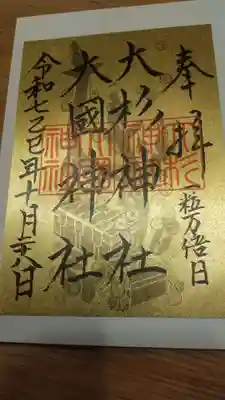 奉拝
一粒万倍日
大杉神社
大國神社
令和七乙巳年十月二十八日